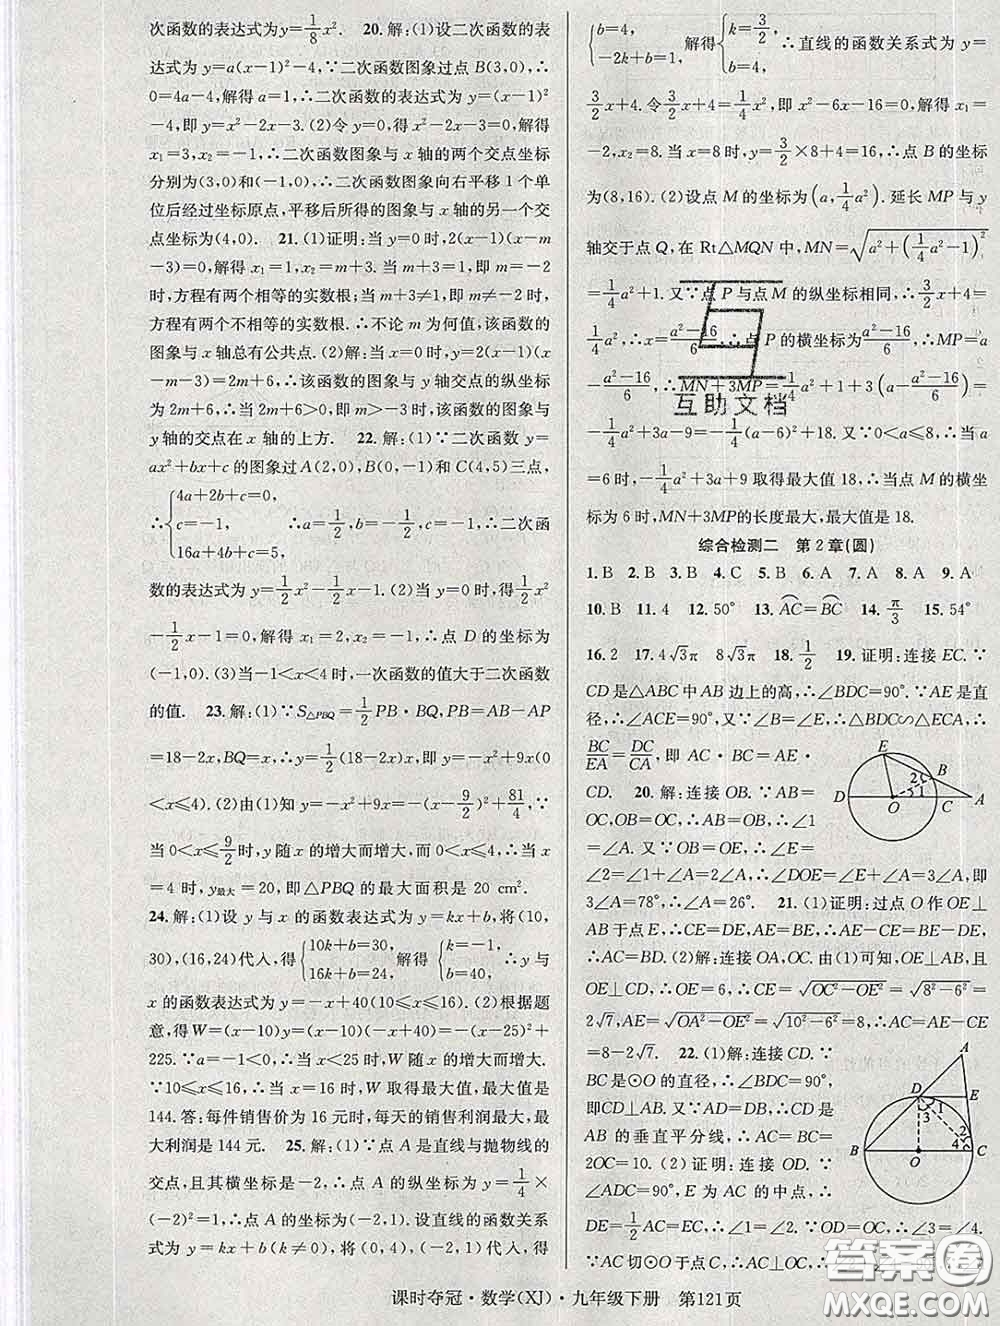 次函数的表达式为y=1/8x². 20. 解:(1)设二次函数的表
达式为y=a(x-1)²-4,∵二次函数图象过点B(3,0),∴
0=4a-4,解得a=1,∴二次函数的表达式为y=(x-1)²
-4,即y=x²-2x-3. (2)令y=0,得x²-2x-3=0,解得
x₁=3,x₂=-1,∴二次函数图象与x轴的两个交点坐标
分别为(3,0)和(-1,0),∴二次函数图象向右平移1个单
位后经过坐标原点,平移后所得的图象与x轴的另一个交
点坐标为(4,0). 21. (1)证明:当y=0时,2(x-1)(x-m
-3)=0,解得x₁=1,x₂=m+3. 当m+3=1,即m=-2
时,方程有两个相等的实数根;当m+3≠1,即m≠-2时,
方程有两个不相等的实数根. ∴不论m为何值,该函数的
图象与x轴总有公共点. (2)解:当x=0时,y=2(x-1)(x
-m-3)=2m+6,∴该函数的图象与y轴交点的纵坐标
为2m+6,∴当2m+6>0,即m>-3时,该函数的图象与
y轴的交点在x轴的上方. 22. 解:(1)∵二次函数y=
ax²+bx+c的图象过A(2,0),B(0,-1)和C(4,5)三点,
∴{4a+2b+c=0, c=-1, 16a+4b+c=5, ∴a=1/2,b=-1/2,c=-1,∴二次函
数的表达式为y=1/2x²-1/2x-1. (2)当y=0时,得1/2x²
-1/2x-1=0,解得x₁=2,x₂=-1,∴点D的坐标为
(-1,0). (3)当-1<x<4时,一次函数的值大于二次函数
的值. 23. 解:(1)∵S△PBQ=1/2PB·BQ,PB=AB-AP
=18-2x,BQ=x,∴y=1/2(18-2x)x,即y=-x²+9x
(0<x≤4). (2)由(1)知y=-x²+9x=-(x-9/2)²+81/4,∵
当0<x≤9/2时,y随x的增大而增大,而0<x≤4,∴当x
=4时,y最大=20,即△PBQ的最大面积是20 cm².
24. 解:(1)设y与x的函数表达式为y=kx+b,将(10,
30),(16,24)代入,得{10k+b=30, 16k+b=24, 解得{k=-1, b=40. ∴y与
x的函数表达式为y=-x+40(10≤x≤16). (2)根据题
意,得W=(x-10)y=(x-10)(-x+40)=-(x-25)²+
225. ∵a=-1<0,∴当x<25时,W随x的增大而增大.
∵10≤x≤16,∴当x=16时,W取得最大值,最大值是
144. 答:每件销售价为16元时,每天的销售利润最大,最
大利润是144元. 25. 解:(1)∵点A是直线与抛物线的
交点,且其横坐标是-2,∴点A的纵坐标为y=1/4×
(-2)²=1,∴点A的坐标为(-2,1). 设直线的函数关系
式为y=kx+b(k≠0),将(0,4),(-2,1)代入,得
{b=4, -2k+b=1, 解得{k=3/2, b=4, ∴直线的函数关系式为y=
3/2x+4. 令3/2x+4=1/4x²,即x²-6x-16=0,解得x₁=
-2,x₂=8. 当x=8时,y=3/2×8+4=16,∴点B的坐标
为(8,16). (2)设点M的坐标为(a,1/4a²). 延长MP与y
轴交于点Q,在Rt△MQN中,MN=√(a²+(1/4a²-1)²)
=1/4a²+1. 又∵点P与点M的纵坐标相同,∴3/2x+4=
1/4a²,∴x=(a²-16)/6,∴点P的横坐标为(a²-16)/6,∴MP=a
-(a²-16)/6,∴MN+3MP=1/4a²+1+3(a-(a²-16)/6)=
-1/4a²+3a+9=-1/4(a-6)²+18. 又∵0<a≤8,∴当a
=6时,-1/4a²+3a+9取得最大值18,∴当点M的横坐
标为6时,MN+3MP的长度最大,最大值是18.
综合检测二 第2章(圆)
1. B 2. B 3. B 4. C 5. B 6. A 7. A 8. A 9. A
10. B 11. 4 12. 50° 13. AC=BC 14. π/3 15. 54°
16. 2 17. 4√3π 8√3π 18. 1/2 19. 证明:连接EC. ∵
CD是△ABC中AB边上的高,∴∠BDC=90°. ∵AE是直
径,∴∠ACE=90°. 又∵∠B=∠E,∴△BDC∽△ECA,∴
BC/EA=DC/CA,即AC·BC=AE·
CD. 20. 解:连接OB. ∵AB=
OC,OB=OC,∴AB=OB,∴∠1
=∠A. 又∵OB=OE,∴∠E=
∠2=∠1+∠A=2∠A,∴∠DOE=∠E+∠A=3∠A,即
3∠A=78°,∴∠A=26°. 21. (1)证明:过点O作OE⊥AB
于点E,∴CE=DE,AE=BE,∴AE-CE=BE-DE,
∴AC=BD. (2)解:连接OA,OC. 由(1)可知,OE⊥AB,且
OE⊥CD,∴OE=6,∴CE=√(OC²-OE²)=√(8²-6²)=
2√7,AE=√(OA²-OE²)=√(10²-6²)=8,∴AC=AE-CE
=8-2√7. 22. (1)解:连接CD. ∵
BC是⊙O的直径,∴∠BDC=90°,
即CD⊥AB. ∵AD=DB,∴CD是
AB的垂直平分线,∴AC=BC=
2OC=10. (2)证明:连接OD. ∵
∠ADC=90°,E为AC的中点,∴
DE=1/2AC=EC,∴∠1=∠2. ∵OD=OC,∴∠3=∠4.
∵AC切⊙O于点C,∴AC⊥OC,∴
D O C A B E 1 2
A D E B O C 1 2 3 4
互助文档
答案圈
MXQE.COM
课时夺冠·数学(XJ)·九年级下册 第121页